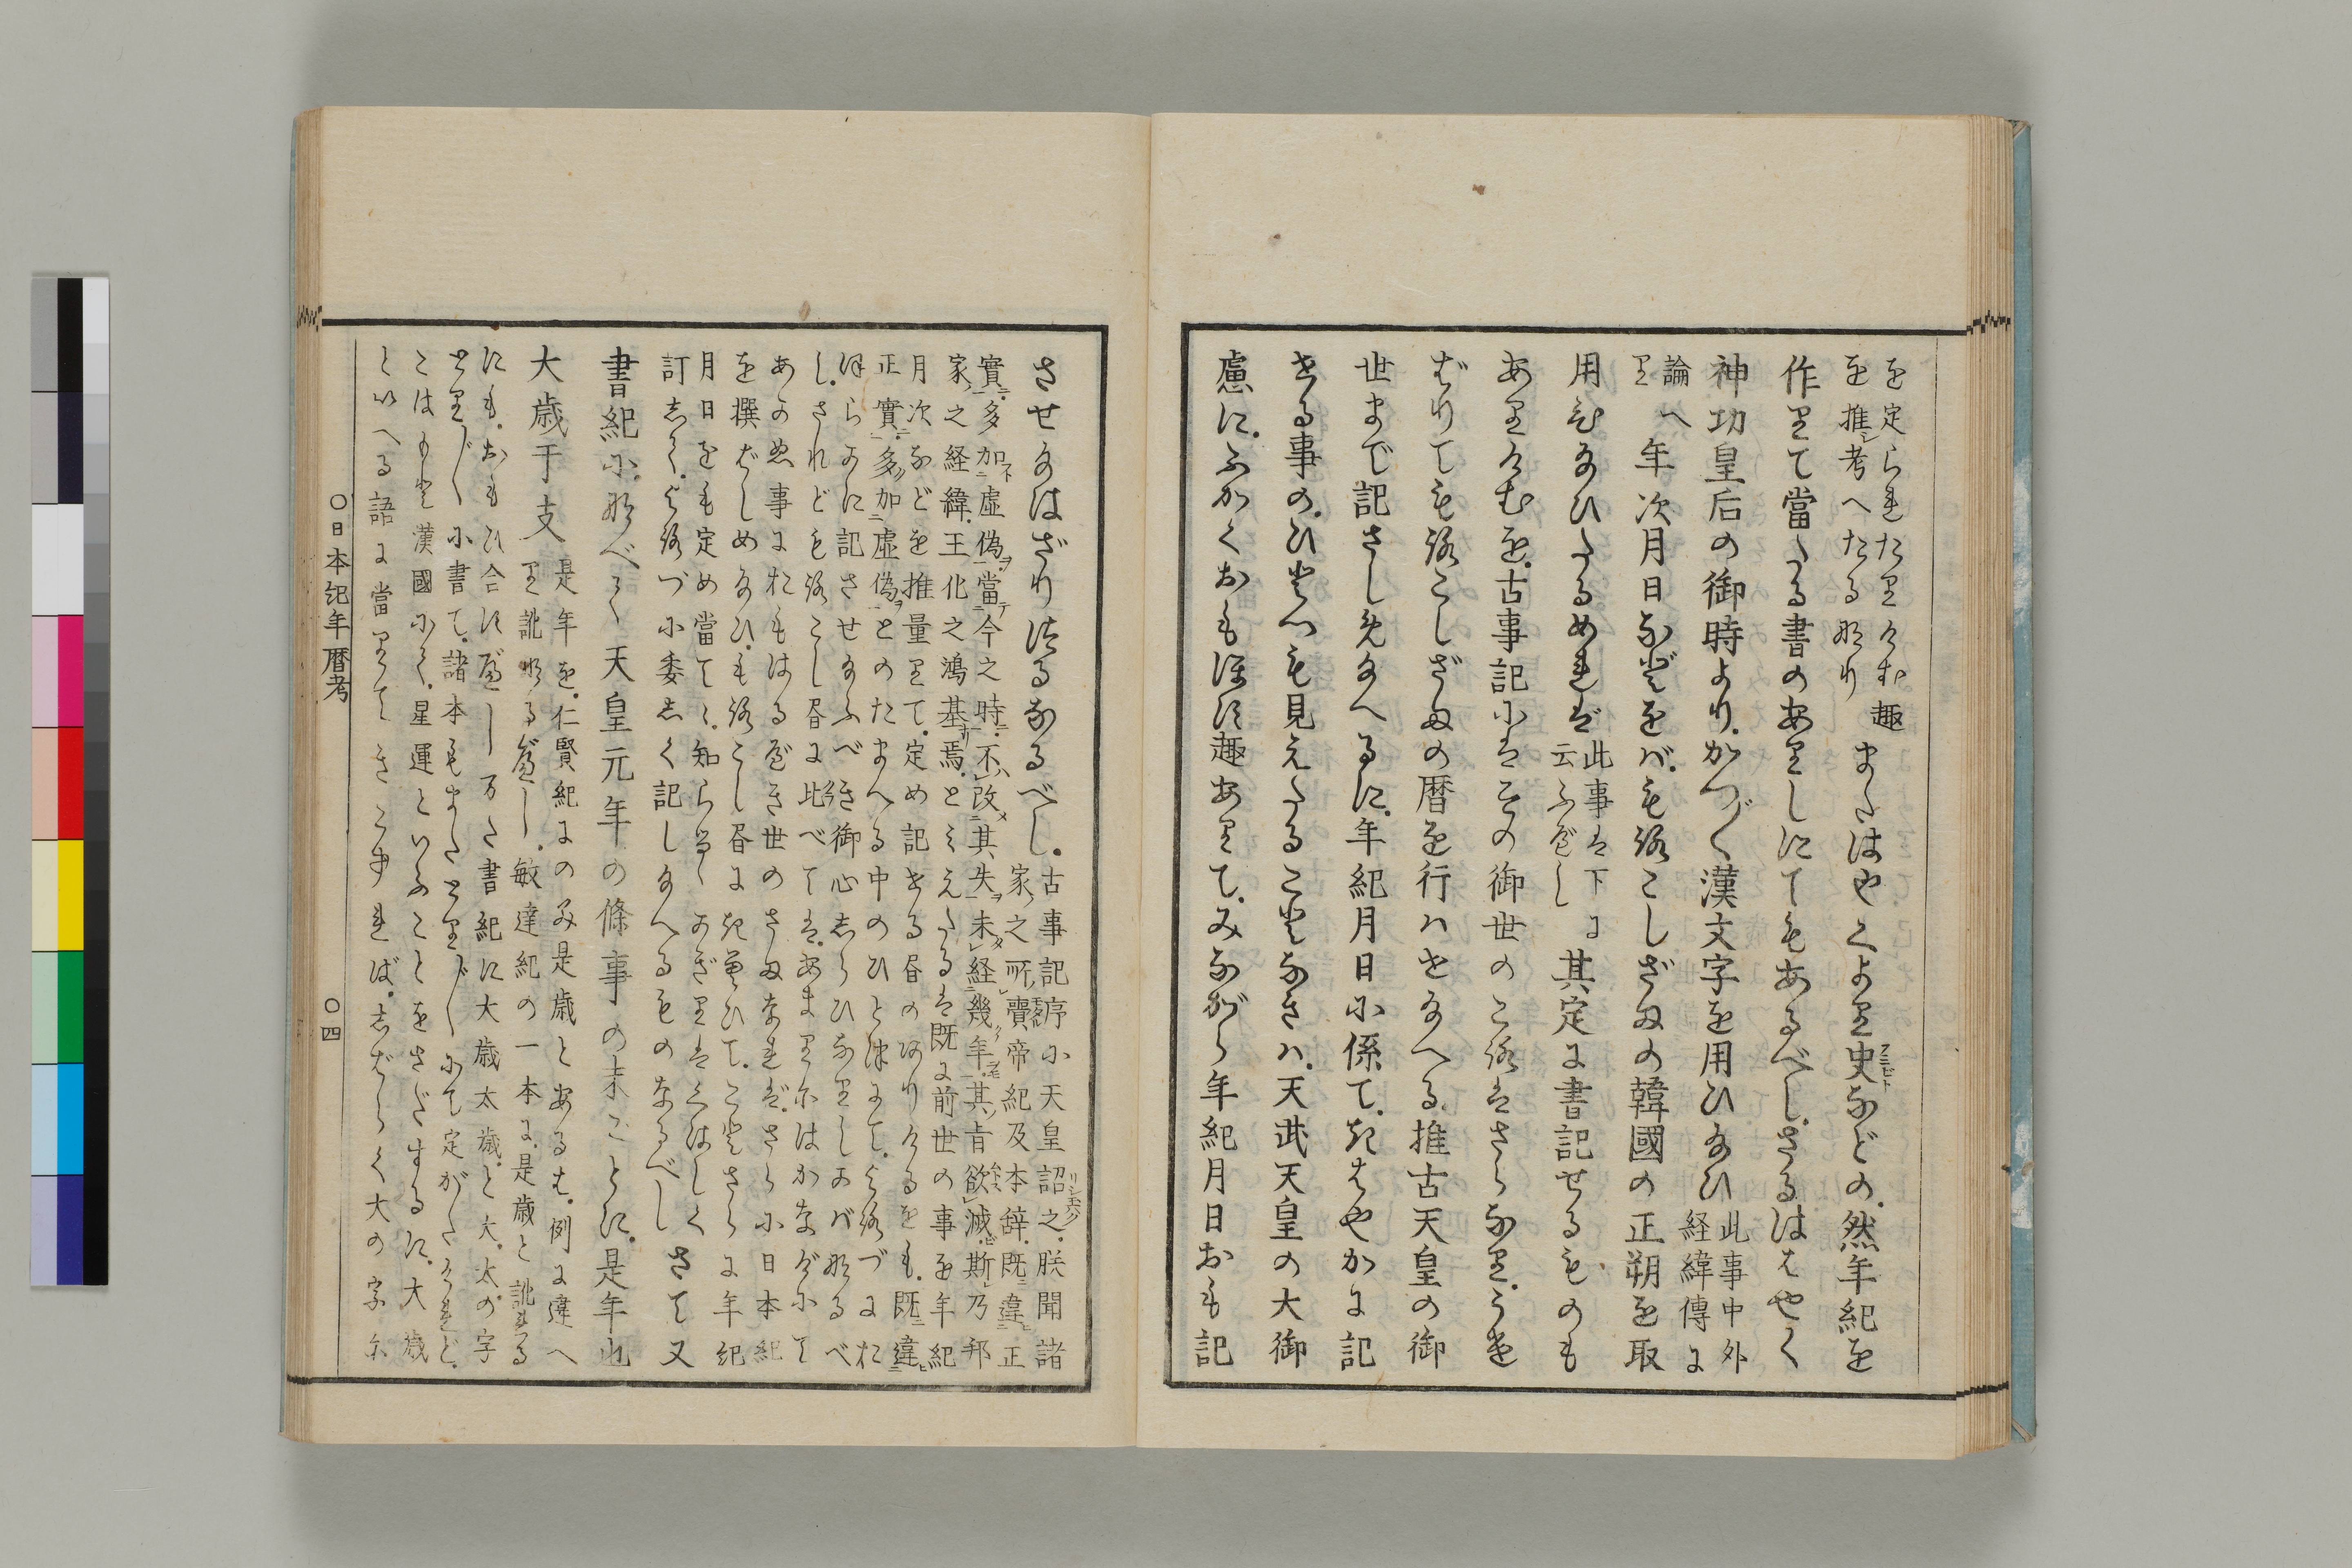 を定られたりけむ趣
を推シ考へたるなり
またはやくより史フミビトなどの、然年紀を
作りて當たる書のありしにてもあるべし、さるははやく
神功皇后の御時より、かつ〴〵漢文字を用ひ給ひ
此事中外
経緯傳に
論へ
り
年次月日などをバ、もろこしざまの韓國の正朔を取
用ひ給ひたるめれど
此事は下に
云ふべし
其定に書記せるものも
ありけむを、古事記にはその御世のころはさらなり、うけ
ばりてもろこしざまの暦を行ハせ給へる、推古天皇の御
世まで記さしめ給へるに、年紀月日に係て、おほやかに記
せる事の、ひとつも見えたることなきハ、天武天皇の大御
慮に、ふかくおもほす趣ありて、みながら年紀月日おも記
させ給はざりけるなるべし、
古事記序に天皇詔之、朕聞諸
家之所賷帝紀及本辞、既違正
實、多加虚偽、當今之時、不改其失、未経幾年、其旨欲滅、斯乃邦
家之経緯、王化之鴻基焉、とみえたるは既に前世の事を年紀
月次などを推量りて、定め記せる書のありけるをも、既違
正實、多加虚偽とのたまへる中のひとつにて、よろづにお
ほらかに記させ給ふべき御心しらひなりしかバなるべ
し、されどもろこし書に比べては、あまりにはかなだにて
あかぬ事におもはるべき世のさまなれば、さらに日本紀
を撰ばしめ給ひ、もろこし書におよひて、ことさらに年紀
月日をも定め當てゝ、知らるゝかぎりはくはしく
訂して、よろづに委しく記し給へるものなるべし
さて又
書紀に、なべて天皇元年の條事の末ごとに、是年也
大歳于支
是年を、仁賢紀にのみ是歳とあるは、例に違へ
り訛なるべし、敏達紀の一本に、是歳と訛れる
にも、おもひ合すべし、万た書紀に大歳太歳と大太の字
とり〴〵に書て、諸本もまたとり〴〵にて定がたけれど、
こはもと漢國にて、星運といふことをさだするに、大歳
といへる語に當りてきこゆれば、しばらく大の字に
〇日本紀年暦考
〇四